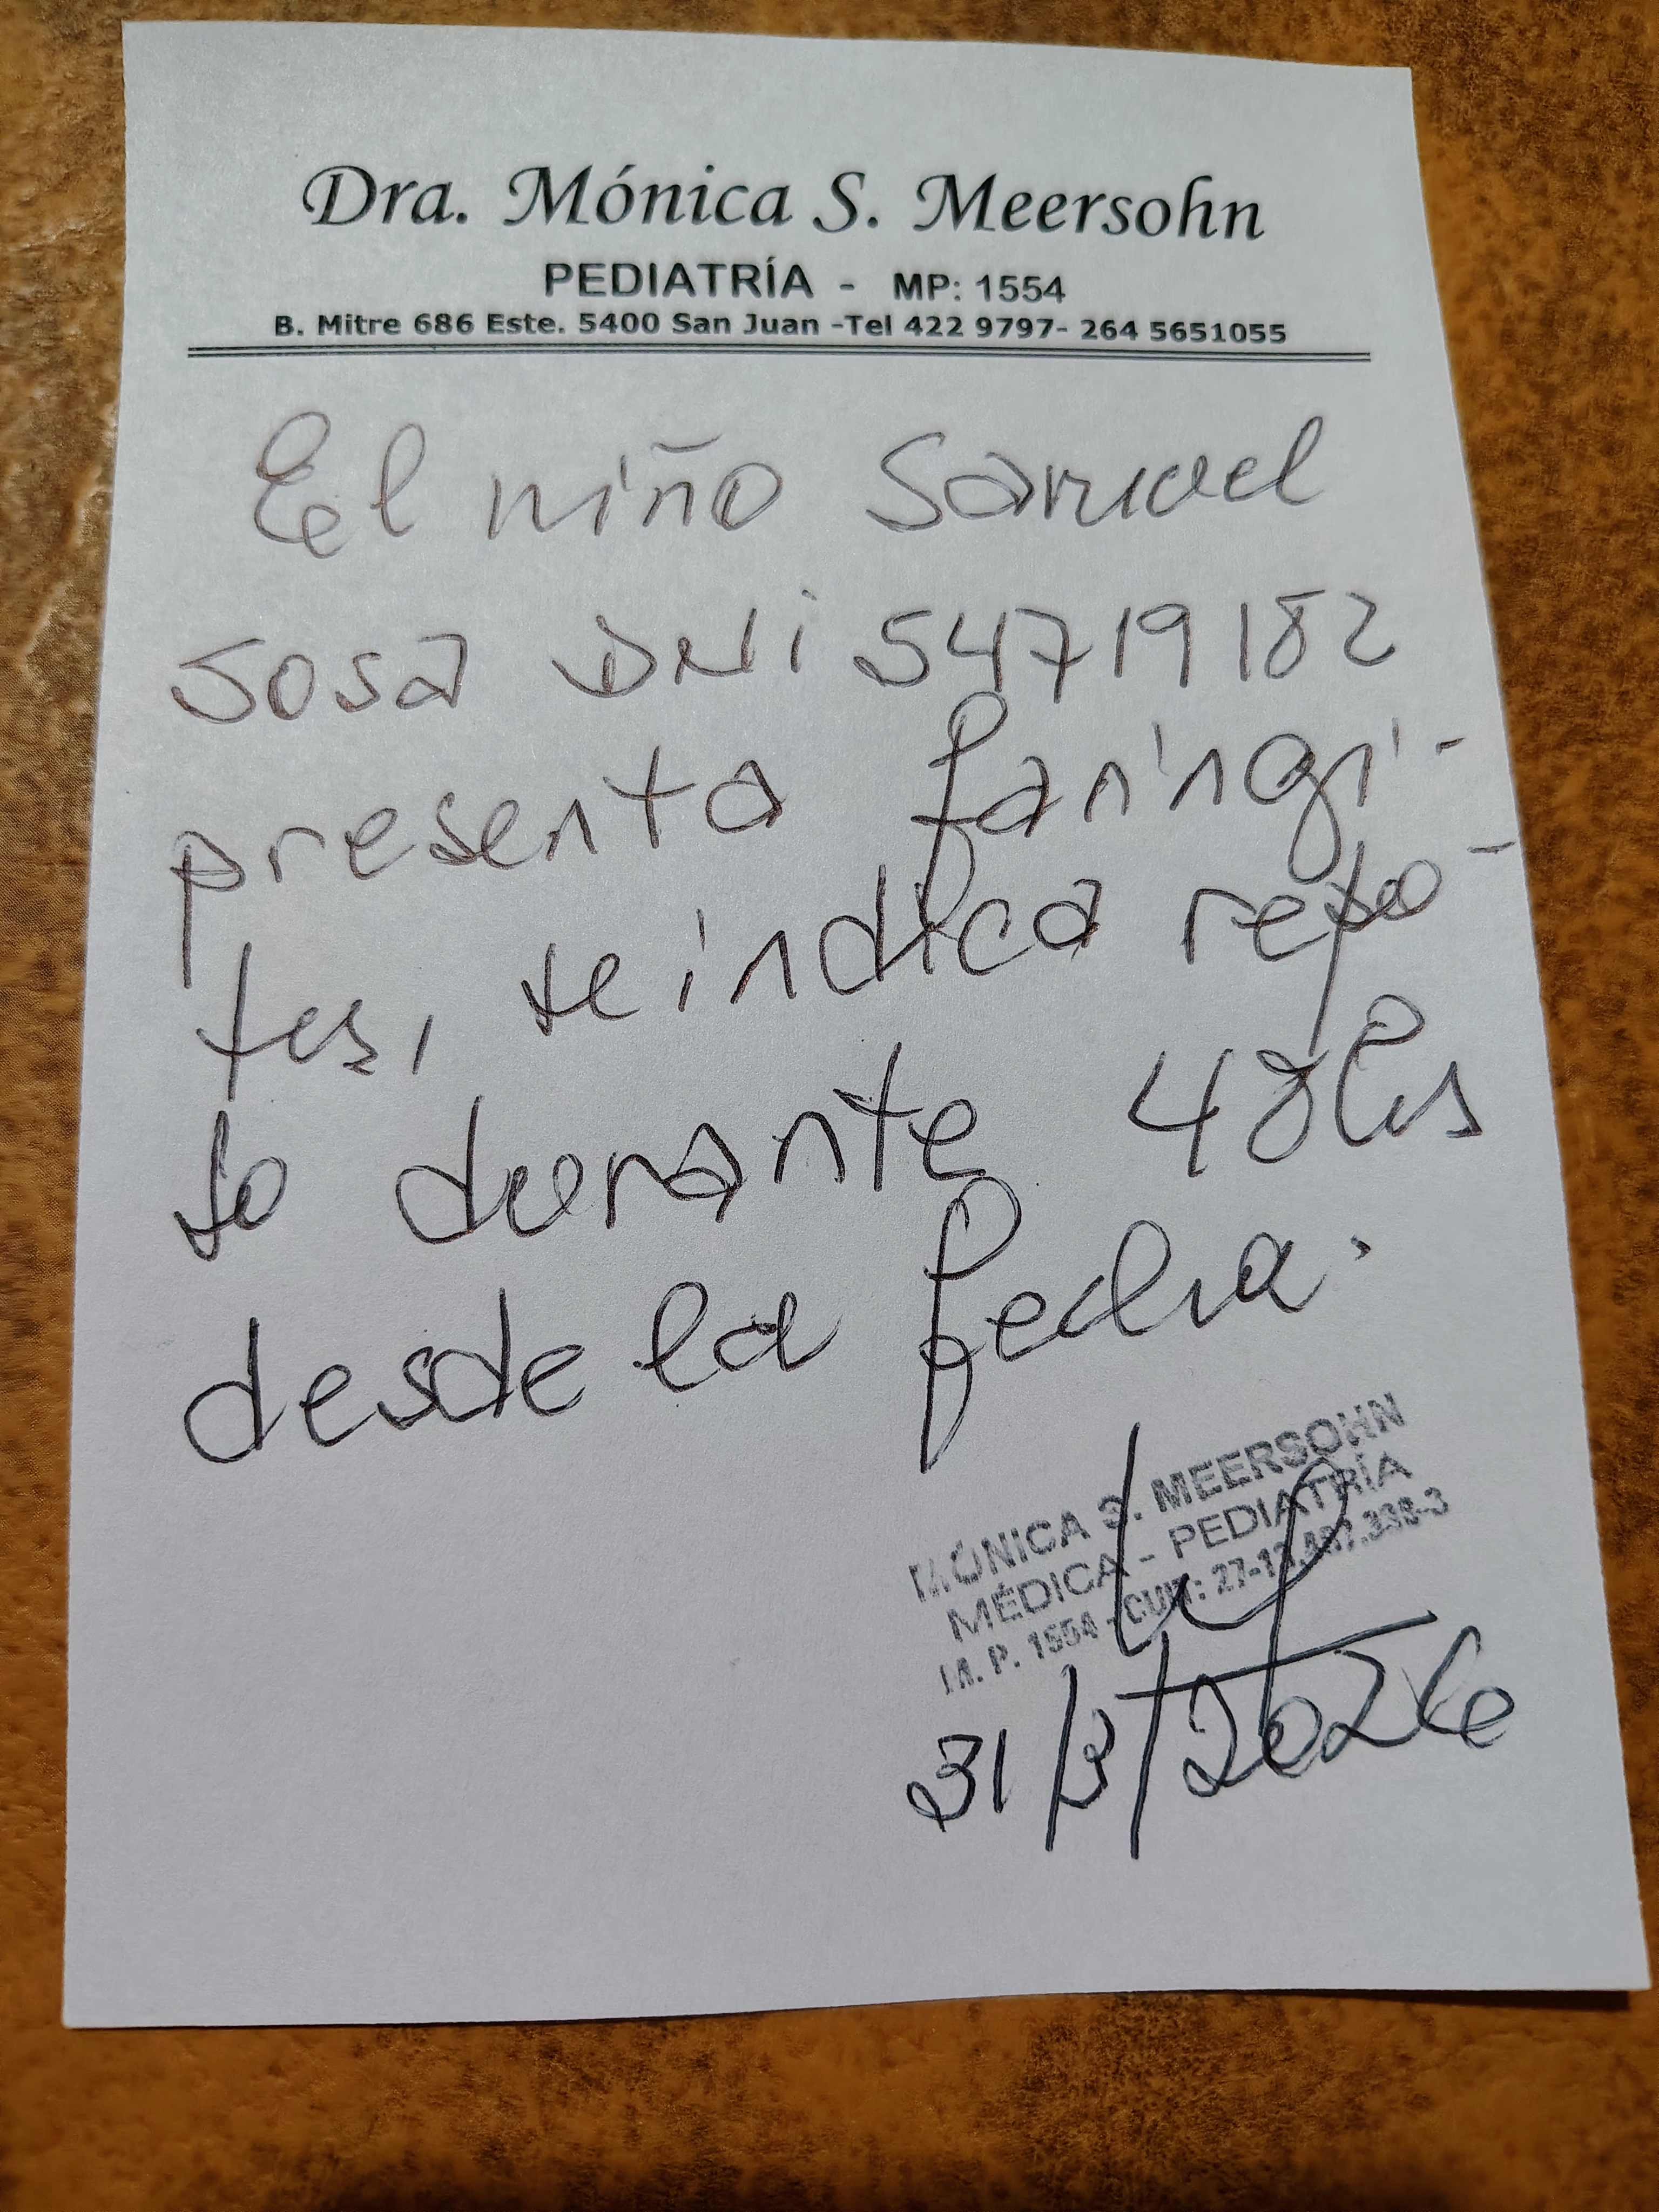 Dra. Mónica S. Meersohn
PEDIATRÍA - MP: 1554
B. Mitre 686 Este. 5400 San Juan -Tel 422 9797- 264 5651055
El niño Samuel
Sosa DNI 54719182
presenta faringi-
tis, se indica repo-
so durante 48hs
desde la fecha.
MÓNICA S. MEERSOHN
MÉDICA - PEDIATRÍA
M. P. 1554 - CUIT: 27-
31/3/2026